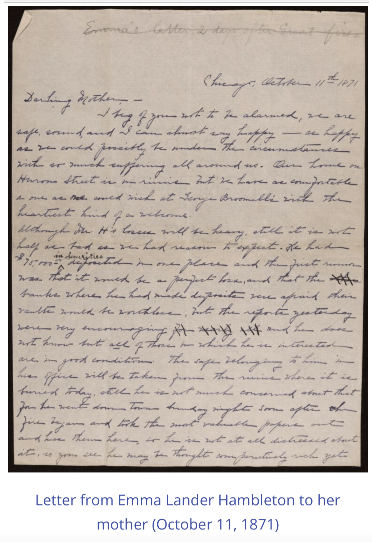 Emma's letter 2 days after Great fire
Chicago, October 11th 1871
Darling Mother —
I beg of you not to be alarmed, we are
safe, sound and I can almost say happy — as happy
as we could possibly be under the circumstances
with so much suffering all around us. Our home on
Huron Street is in ruins but we have as comfortable
a one as we could wish at George Broomell's with the
heartiest kind of a welcome.
Although Mr H's losses will be heavy, still it is not
half as bad as we had reason to expect. He had
in securities
deposited in one place and the first rumor
was that it would be a perfect loss, and that the
banks where he had made deposits were afraid their
vaults would be worthless, but the reports yesterday
were very encouraging and he does
not know but all of those in which he is interested
are in good condition. The safe belonging to him in
his office will be taken from the ruins where it is
buried today, still he is not much concerned about that
for he went down town Sunday night soon after the
fire began and took the most valuable papers out
and has them here, so he is not at all distressed about
it, so you see he may be thought comparatively rich yet
Letter from Emma Lander Hambleton to her
mother (October 11, 1871)